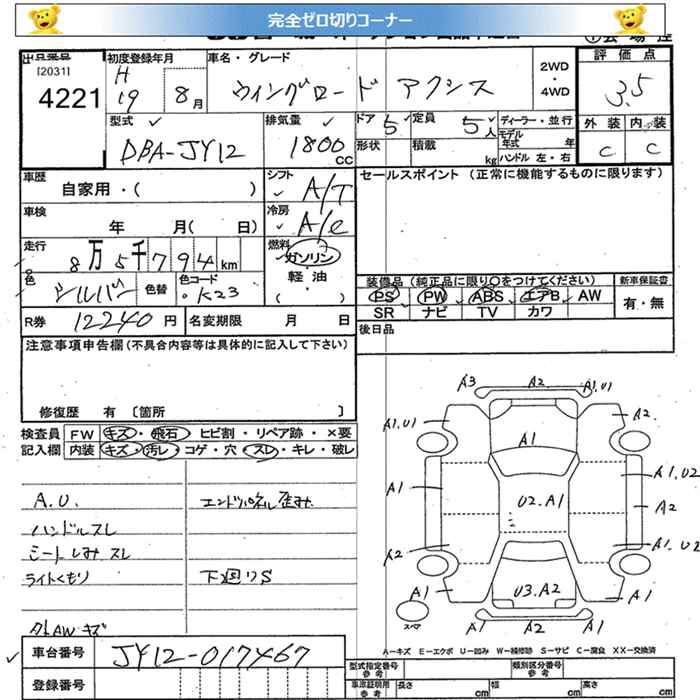 完全ゼロ切りコーナー
出品番号 初度登録年月 車名・グレード 評価点
[2031] H 2WD
4221 19 8月 ウイングロード アクシス ・4WD 3.5
型式 排気量 ドア 5 定員 5人 ディーラー・並行 外装 内装
DBA-JY12 1800cc 形状 積載 kg モデル年式 年 C C
ハンドル 左・右
車歴 シフト セールスポイント (正常に機能するものに限ります)
自家用・( ) A/T
車検 冷房
年 月( 日) A/C
走行 燃料
8万5千794km ガソリン
色 色替 色コード 軽油 装備品 (純正品に限り○をつけてください) 新車保証書
シルバー K23 ( ) PS PW ABS エアB AW 有・無
SR ナビ TV カワ
R券 12240円 名変期限 月 日 後日品
注意事項申告欄 (不具合内容等は具体的に記入して下さい)
修復歴 有 〔箇所 〕
検査員 FW キズ・飛石・ヒビ割・リペア跡・×要
記入欄 内装 キズ・汚レ・コゲ・穴・スレ・キレ・破レ
A3 A2 A1.U1
A1.U1 A2
A1
A1 U2.A1 A1.U2
A2
A2 A1.U2
A1 U3.A2 A1
A1 A2 A1
スペア
A.U. エンドパネル歪み
ハンドルスレ
シートしみ スレ
ライトくもり 下廻りS
タトAWキズ
A-キズ E-エクボ U-凹み W-補修跡 S-サビ C-腐食 XX-交換済
車台番号 JY12-017467 型式指定番号 参考 類別区分番号 参考
登録番号 車庫証明用 参考 長さ cm 幅 cm 高さ cm